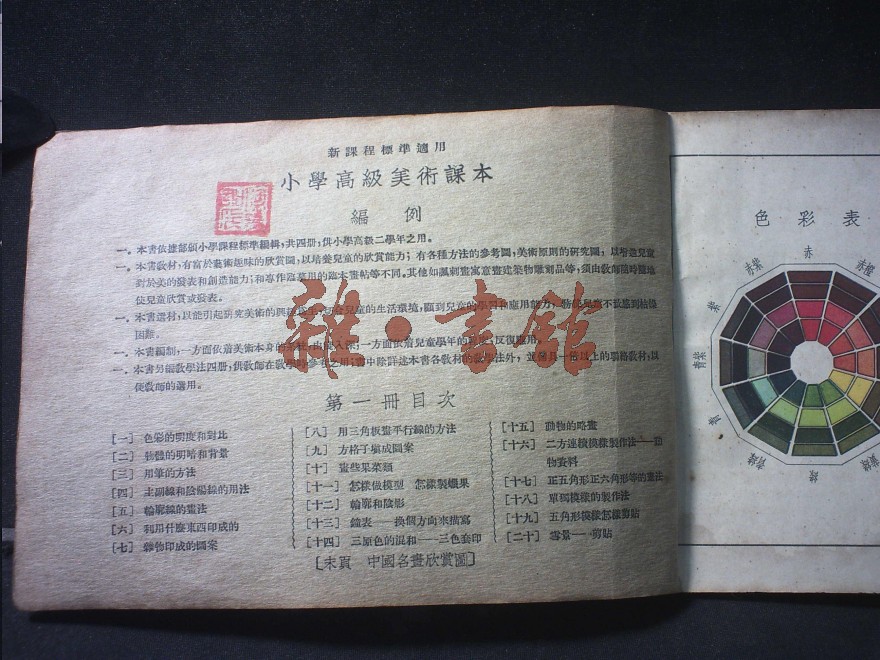 新課程標準適用
小學高級美術課本
編例
一。本書依據部頒小學課程標準編輯,共四册,供小學高級二學年之用。
一。本書敎材,有富於藝術趣味的欣賞圖,以培養兒童的欣賞能力;有各種方法的參考圖,美術原則的研究圖,以增進兒童
對於美的發表和創造能力;和專作臨摹用的臨本畫帖等不同。其他如諷刺畫寓意畫建築物雕刻品等,須由敎師隨時隨地
使兒童欣賞或發表。
一。本書選材,以能引起研究美術的興趣
兒童的生活環境,顧到兒童的學習和應用能力,務使兒童不致感到枯燥
困難。
一。本書編制,一方面依着美術本身的系統,由淺入深;一方面依着兒童學年的程度,反復應用。
一。本書另編敎學法四册,供敎師在敎學時參考之用;書中除詳述本書各敎材的敎學法外,並備具一倍以上的聯絡敎材,以
便敎師的選用。
雜·書館
第一冊目次
[一] 色彩的明度和對比
[二] 物體的明暗和背景
[三] 用筆的方法
[四] 主副線和陰陽線的用法
[五] 輪廓線的畫法
[六] 利用什麼東西印成的
[七] 雜物印成的圖案
[八] 用三角板畫平行線的方法
[九] 方格子購成圖案
[十] 畫些果菜類
[十一] 怎樣做模型 怎樣製蠟果
[十二] 輪廓和陰影
[十三] 鐘表——換個方向來描寫
[十四] 三原色的混和——三色套印
[十五] 動物的略畫
[十六] 二方連續模樣製作法——動
物資料
[十七] 正五角形正六角形等的畫法
[十八] 單獨模樣的製作法
[十九] 五角形模樣怎樣剪貼
[二十] 雪景——剪貼
[末頁 中國名畫欣賞圖]
色彩表
赤
赤紫
赤橙
紫
青紫
青
青綠
綠
黃綠